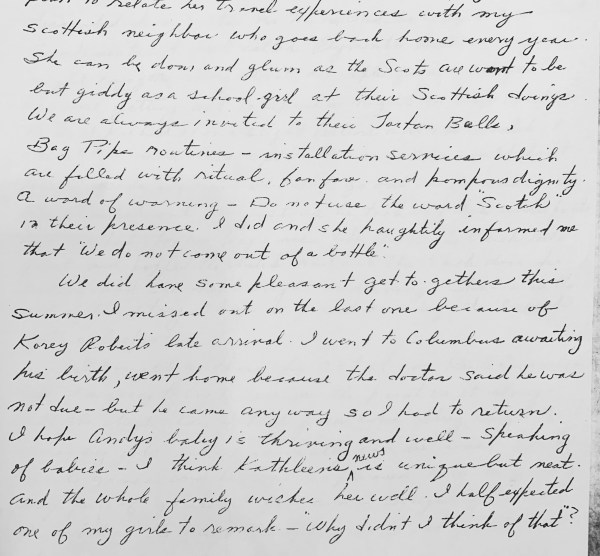 plan to relate her travel experiences with my
Scottish neighbor who goes back home every year.
She can be dour and glum as the Scots are wont to be
but giddy as a school-girl at their Scottish doings.
We are always invited to their Tartan Balls,
Bag Pipe routines - installation services which
are filled with ritual, fanfare and pompous dignity.
A word of warning - Do not use the word "Scotch"
in their presence. I did and she haughtily informed me
that "We do not come out of a bottle".
We did have some pleasant get-to-gethers this
summer. I missed out on the last one because of
Korey Robert's late arrival. I went to Columbus awaiting
his birth, went home because the doctor said he was
not due - but he came anyway so I had to return.
I hope Andy's baby is thriving and well - Speaking
of babies - I think Kathleen's news is unique but neat.
And the whole family wishes her well. I half expected
one of my girls to remark - "Why didn't I think of that"?